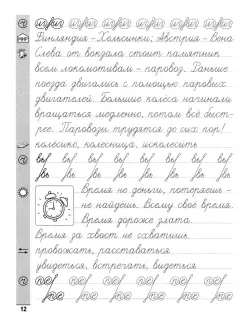 Финляндия - Хельсинки; Австрия - Вена
Слева от вокзала стоит памятник
всем локомотивам - паровоз. Раньше
поезда двигались с помощью паровых
двигателей. Большие колёса начинали
вращаться медленно, потом всё быст-
рее. Паровозы трудятся до сих пор!
колёсико, колесница, исколесить
Время не деньги, потеряешь -
не найдёшь. Всему своё время.
Время дороже злата.
Время за хвост не схватишь
провожать, расставаться
увидеться, встречать, видеться
12